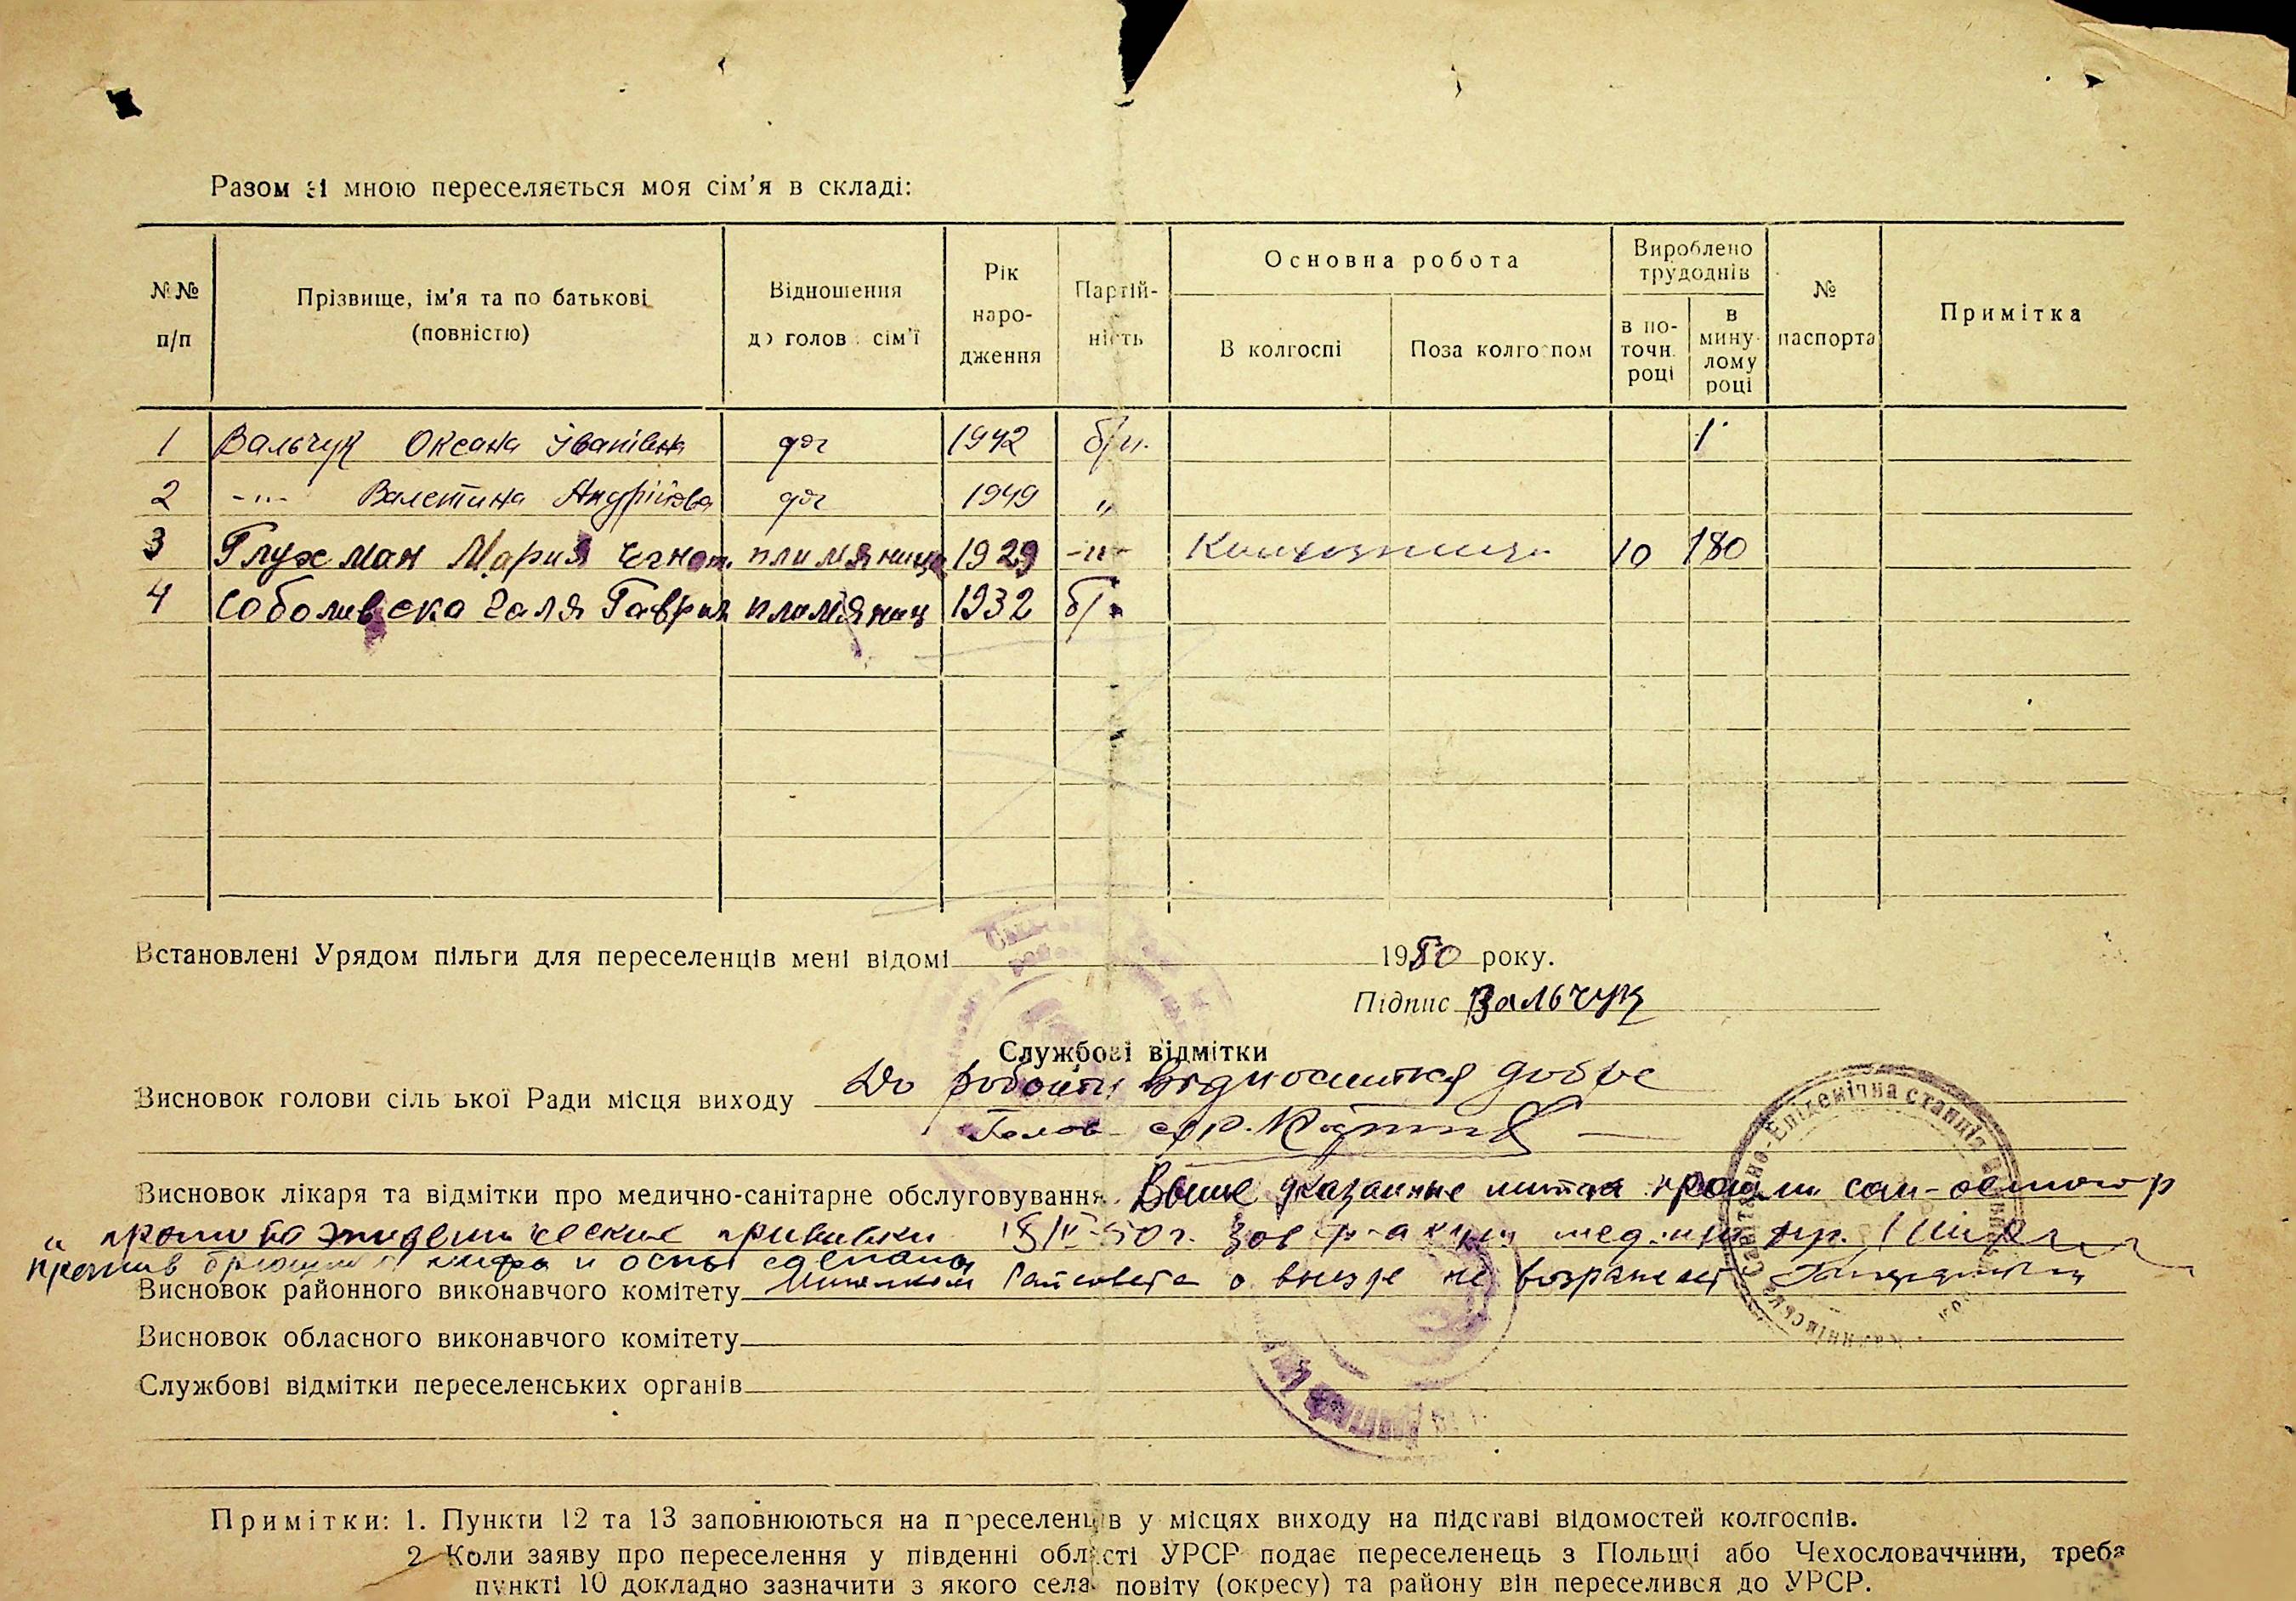 Разом зі мною переселяється моя сім'я в складі:
№№ п/п
Прізвище, ім'я та по батькові (повністю)
Відношення до голови сім'ї
Рік народження
Партій-ність
Основна робота
В колгоспі
Поза колгоспом
Вироблено трудоднів
в по-точн. році
в мину-лому році
№ паспорта
Примітка
1 Вальчук Оксана Іванівна доч 1942 б/п. 1
2 -"- Валетина Андрііва доч 1949 "
3 Глухман Мария Ігнат. племяница 1929 -"- 10 180
4 Соболивска Галя Гаврил племяниц 1932 б/п
Встановлені Урядом пільги для переселенців мені відомі 1950 року.
Підпис Вальчук
Службові відмітки
Висновок голови сільської Ради місця виходу До роботи відноситься добре
Голова с/р.
Висновок лікаря та відмітки про медично-санітарне обслуговування Выше указанные прошли сан-осмотр
и противоэпидемические прививки
против брюшного тифа и оспы сделаны
Висновок районного виконавчого комітету Райсовета о выезде не возражает
Висновок обласного виконавчого комітету
Службові відмітки переселенських органів
Санітарно-Епідемічна станція
Примітки: 1. Пункти 12 та 13 заповнюються на переселенців у місцях виходу на підставі відомостей колгоспів.
2 Коли заяву про переселення у південні області УРСР подає переселенець з Польщі або Чехословаччини, треба
пункті 10 докладно зазначити з якого села повіту (окресу) та району він переселився до УРСР.